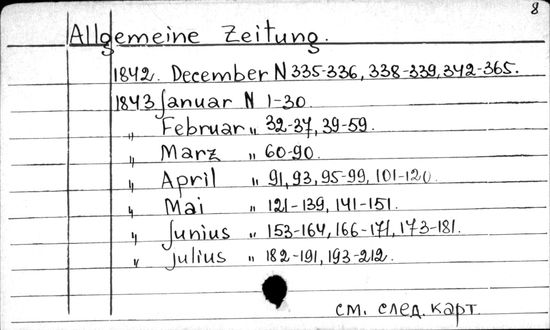 8
Allgemeine Zeitung.
1842. December N 335-336, 338-339, 342-365.
1843 Januar N 1-30.
" Februar " 32-37, 39-59.
" Marz " 60-90.
" April " 91, 93, 95-99, 101-120.
" Mai " 121-139, 141-151.
" Junius " 153-164, 166-171, 173-181.
" Julius " 182-191, 193-212.
см. след. карт.